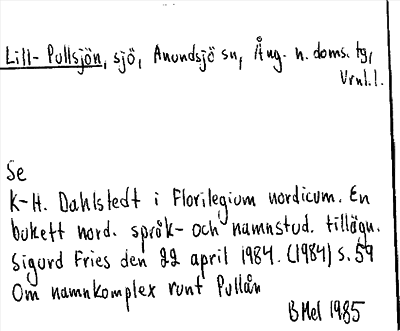 Lill-Pullsjön, sjö, Anundsjö sn, Ång. n. doms. tg,
Vrnl.l.
Se
K-H. Dahlstedt i Florilegium nordicum. En
bukett nord. språk- och namnstud. tillägn.
Sigurd Fries den 22 april 1984. (1984) s. 59
Om namnkomplex runt Pullån
BMel 1985